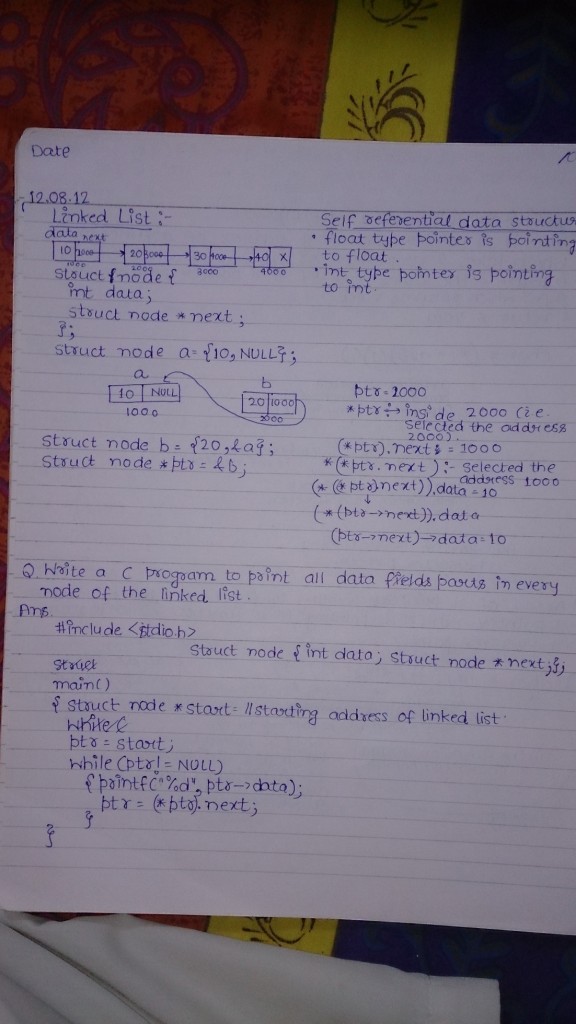 Date
12.08.12
Linked List :-
data next
10 2000 20 3000 30 4000 40 X
1000 2000 3000 4000
Struct node {
int data;
struct node *next;
};
struct node a = {10, NULL};
a
10 NULL
1000
b
20 1000
2000
Struct node b = {20, &a};
Struct node *ptr = &b;
Self referential data structur
• float type pointer is pointing
to float.
• int type pointer is pointing
to int.
ptr = 2000
*ptr :→ inside 2000 (i.e.
selected the address
2000).
(*ptr).next = 1000
*(*ptr.next) :- selected the
address 1000
(*(*ptr)next)).data = 10
↓
(*(ptr->next)).data
(ptr->next)->data = 10
Q. Write a C program to print all data fields parts in every
node of the linked list.
Ans.
#include <stdio.h>
Struct node {int data; struct node *next;};
Struct
main()
{ struct node *start = //starting address of linked list.
while(
ptr = start;
while (ptr != NULL)
{ printf("%d", ptr->data);
ptr = (*ptr).next;
}
}